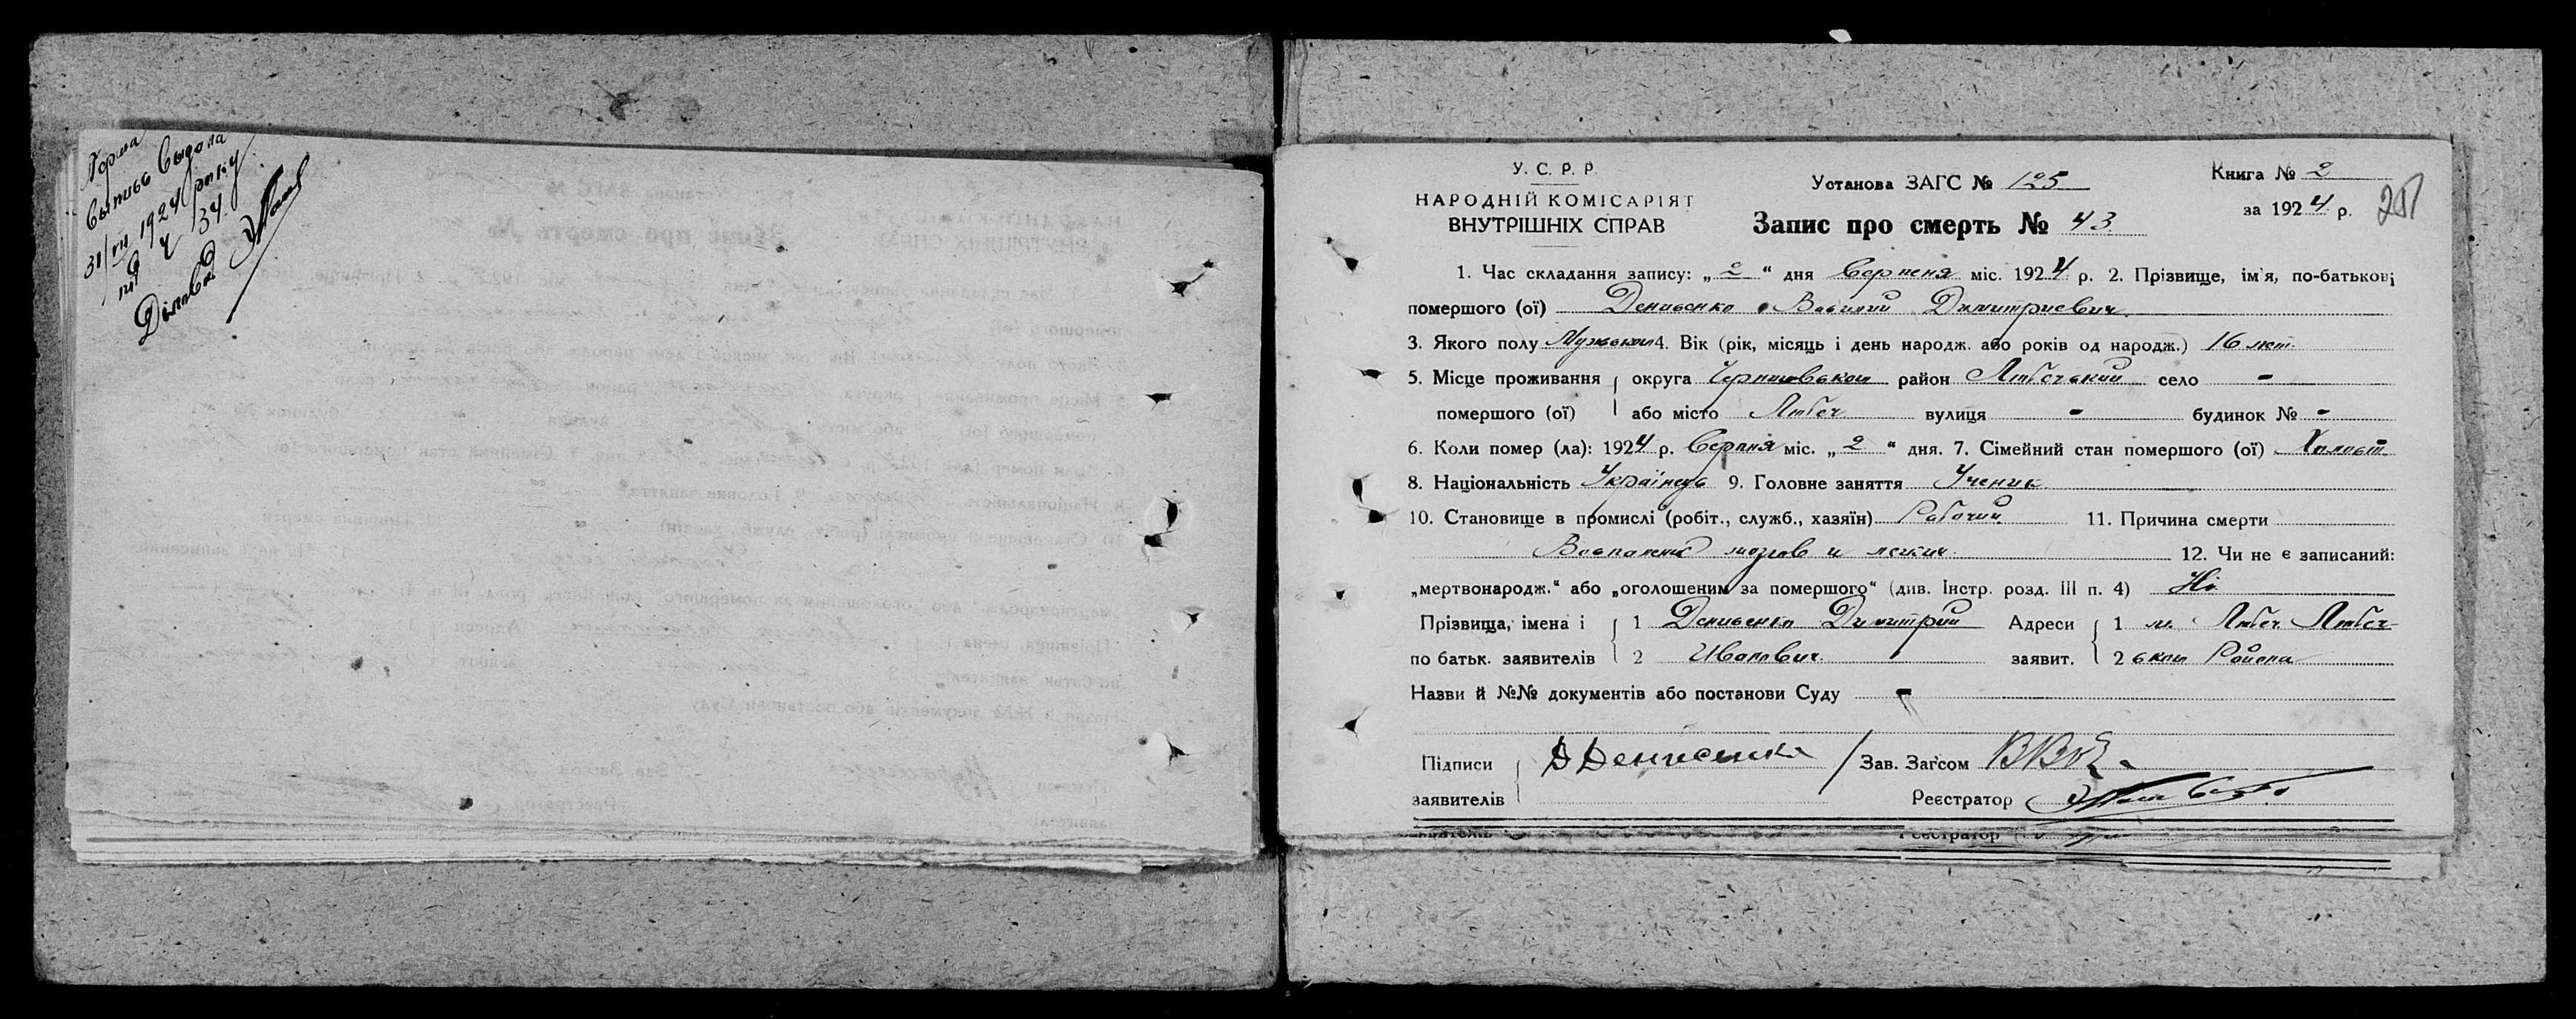 Форма
Выпись Выдана
31/VII 1924 року
під Ч 134.
Діловод
У. С. Р. Р.
НАРОДНІЙ КОМІСАРІЯТ
ВНУТРІШНІХ СПРАВ
Установа ЗАГС № 125
Запис про смерть № 43
Книга № 2
за 1924 р.
1. Час складання запису: „2“ дня Серпеня міс. 1924 р. 2. Прізвище, ім'я, по-батькові
помершого (ої) Денисенко Василий Димитриевич
3. Якого полу Мужськои 4. Вік (рік, місяць і день народж. або років од народж.) 16 лет.
5. Місце проживання округа Черниговськои район Любечький село -
помершого (ої) або місто Любеч вулиця - будинок № -
6. Коли помер (ла): 1924 р. Серпня міс. „2“ дня. 7. Сімейний стан помершого (ої) Холост
8. Національність Українець 9. Головне заняття Ученик
10. Становище в промислі (робіт., служб., хазяїн) Рабочий 11. Причина смерти
Воспаление мозгов и легких 12. Чи не є записаний:
„мертвонародж.“ або „оголошеним за помершого“ (див. Інстр. розд. III п. 4) Ні
Прізвища, імена і 1 Денисенко Димитрий Адреси 1 м. Любеч Любеч-
по батьк. заявителів 2 Иванович заявит. 2 ськои Района
Назви й №№ документів або постанови Суду -
Підписи Д Денисенко Зав. Загсом
заявителів Реєстратор
Реєстратор